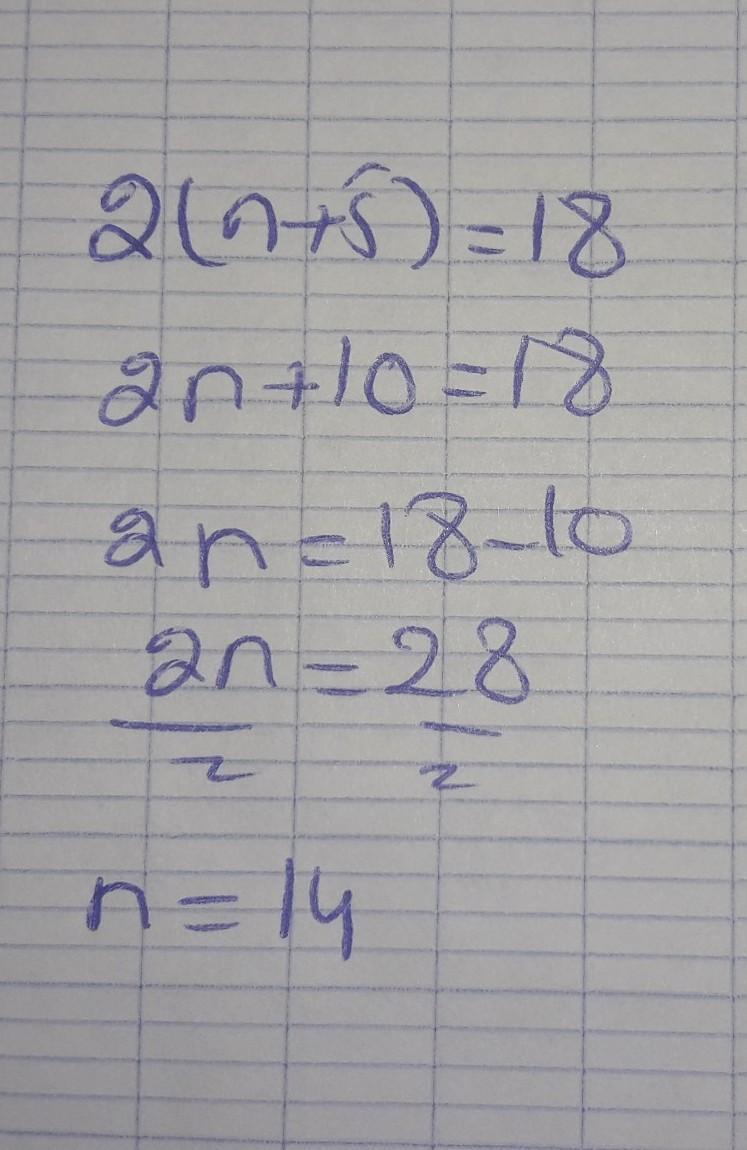 2(n+5)=18
2n+10=18
2n=18-10
2n=28
2 2
n=14